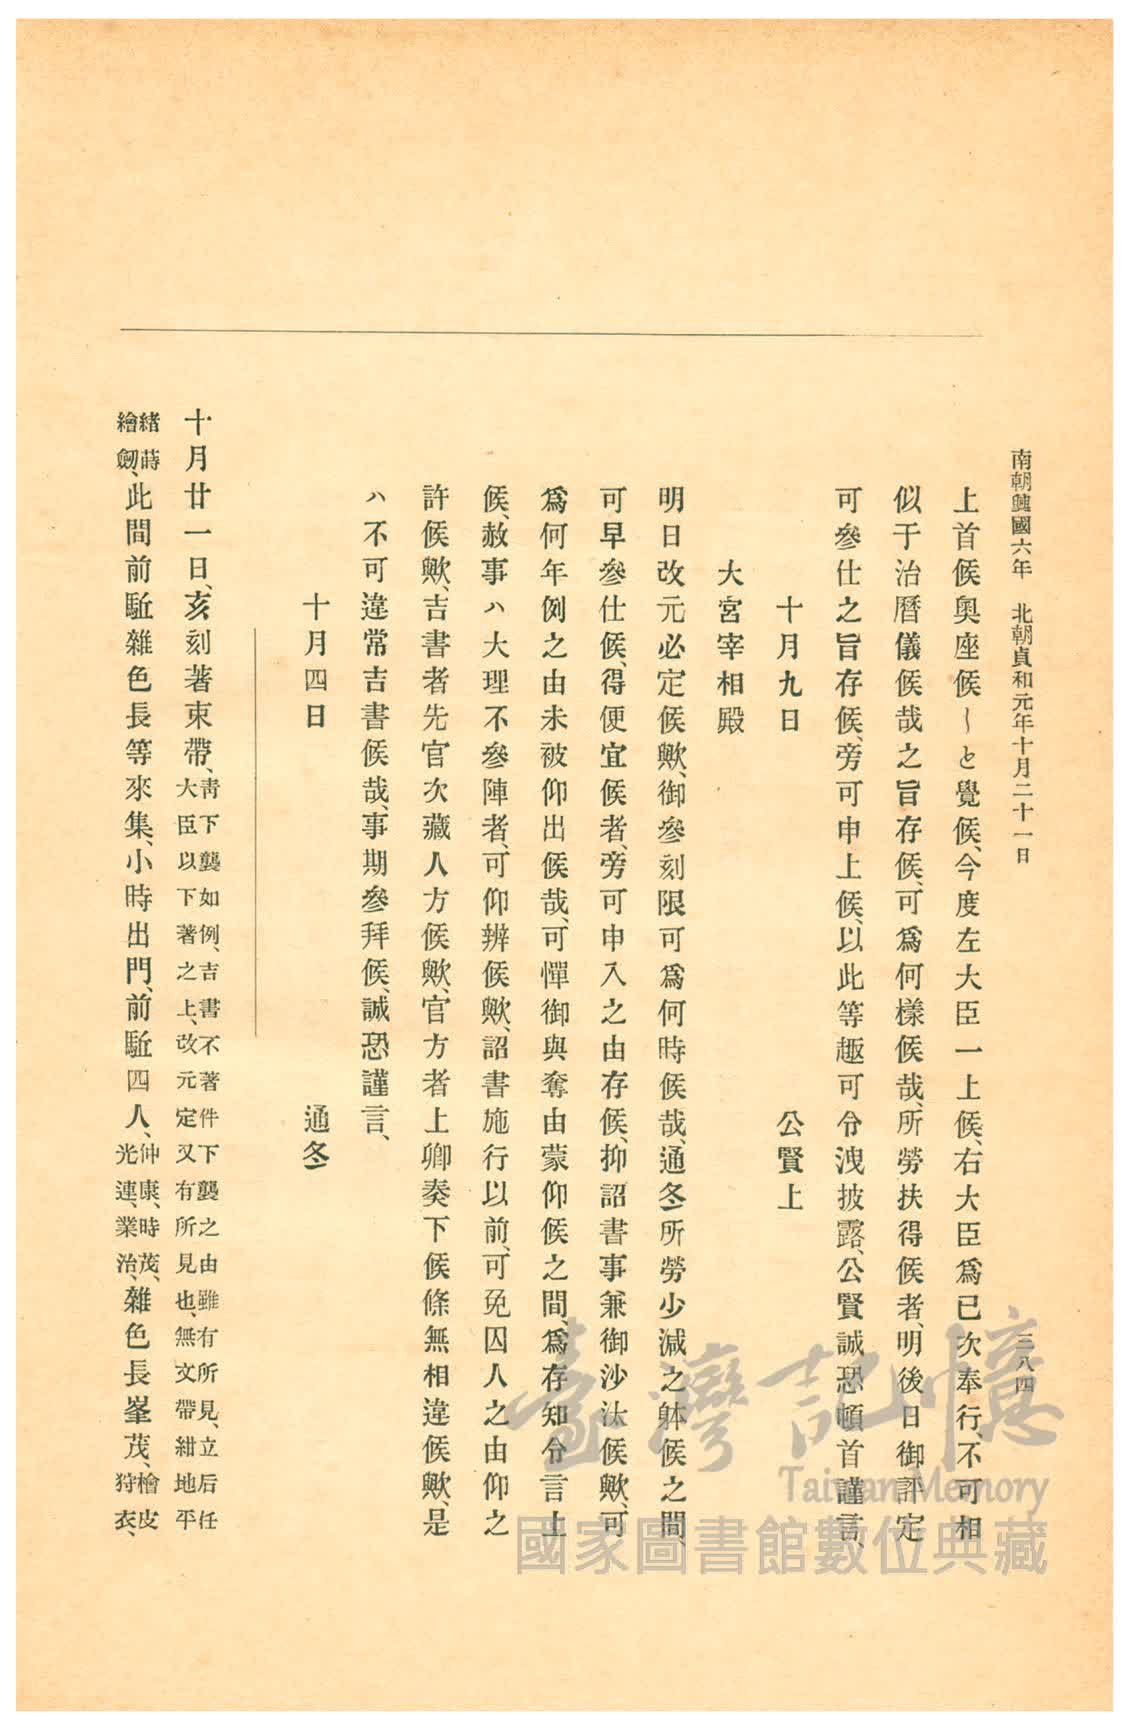 南朝興國六年　北朝貞和元年十月二十一日
三八四
上首候奧座候〳〵と覺候、今度左大臣一上候、右大臣爲已次奉行、不可相
似于治曆儀候哉之旨存候、可爲何樣候哉、所勞扶得候者、明後日御評定
可參仕之旨存候、旁可申上候、以此等趣可令洩披露、公賢誠恐頓首謹言、
十月九日　公賢上
大宮宰相殿
明日改元必定候歟、御參刻限可爲何時候哉、通冬所勞少減之躰候之間、
可早參仕候、得便宜候者、旁可申入之由存候、抑詔書事兼御沙汰候歟、可
爲何年例之由未被仰出候哉、可憚御與奪由蒙仰候之間、爲存知令言上
候、赦事ハ大理不參陣者、可仰辨候歟、詔書施行以前、可免囚人之由仰之
許候歟、吉書者先官次藏人方候歟、官方者上卿奏下候條無相違候歟、是
ハ不可違常吉書候哉、事期參拜候、誠恐謹言、
十月四日　通冬
十月廿一日、亥刻著束帶、
靑下襲如例、吉書不著件下襲之由雖有所見、立后任
大臣以下著之上、改元定又有所見也、無文帶紺地平
緖蒔
繪劒、
此間前駈雜色長等來集、小時出門、前駈四人、
仲康、時茂、
光連、業治、
雜色長峯茂、
檜皮
狩衣、
臺灣記憶
Taiwan Memory
國家圖書館數位典藏